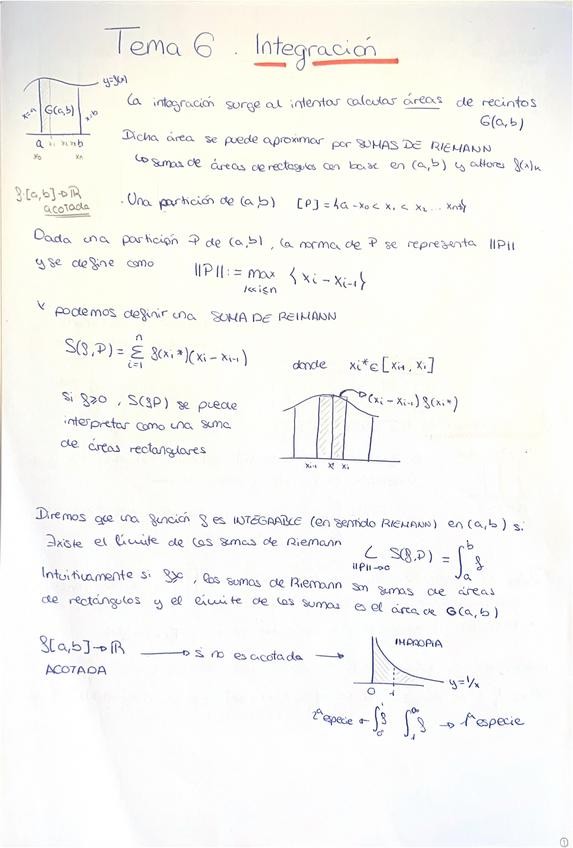 Tema 6. Integración
y=f(x)
x=a G(a,b) x=b
a x₁ x₂ x₃ b
x₀ xₙ
La integración surge al intentar calcular áreas de recintos
G(a,b)
Dicha área se puede aproximar por SUMAS DE RIEMANN
↳ sumas de áreas de rectángulos con base en (a,b) y alturas f(x)
f:[a,b]→ℝ
acotada
· Una partición de (a,b) [P]={a=x₀<x₁<x₂...xₙ}
Dada una partición P de (a,b), la norma de P se representa ||P||
y se define como ||P||:= max {xᵢ - xᵢ₋₁}
1≤i≤n
Y podemos definir una SUMA DE REIMANN
S(f,P) = Σ f(xᵢ*)(xᵢ - xᵢ₋₁) donde xᵢ* ∈ [xᵢ₋₁, xᵢ]
n
i=1
Si f≥0, S(f,P) se puede
interpretar como una suma
de áreas rectangulares
(xᵢ - xᵢ₋₁) f(xᵢ*)
xᵢ₋₁ xᵢ* xᵢ
Diremos que una función f es INTEGRABLE (en sentido RIEMANN) en (a,b) si
Existe el límite de las sumas de Riemann L S(f,P) = ∫ₐᵇ f
||P||→0
Intuitivamente si f≥0, las sumas de Riemann son sumas de áreas
de rectángulos y el límite de las sumas es el área de G(a,b)
f[a,b]→ℝ → si no es acotada →
ACOTADA
IMPROPIA
y=1/x
0 1
2ª especie ← ∫₀¹ f ∫₁^∞ f → 1ª especie
1